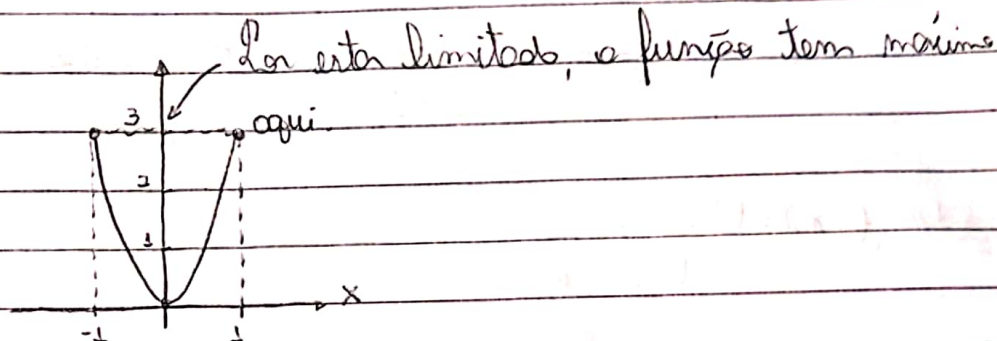 Por estar limitado, a função tem máximo
3
aqui.
2
1
x
-1
1